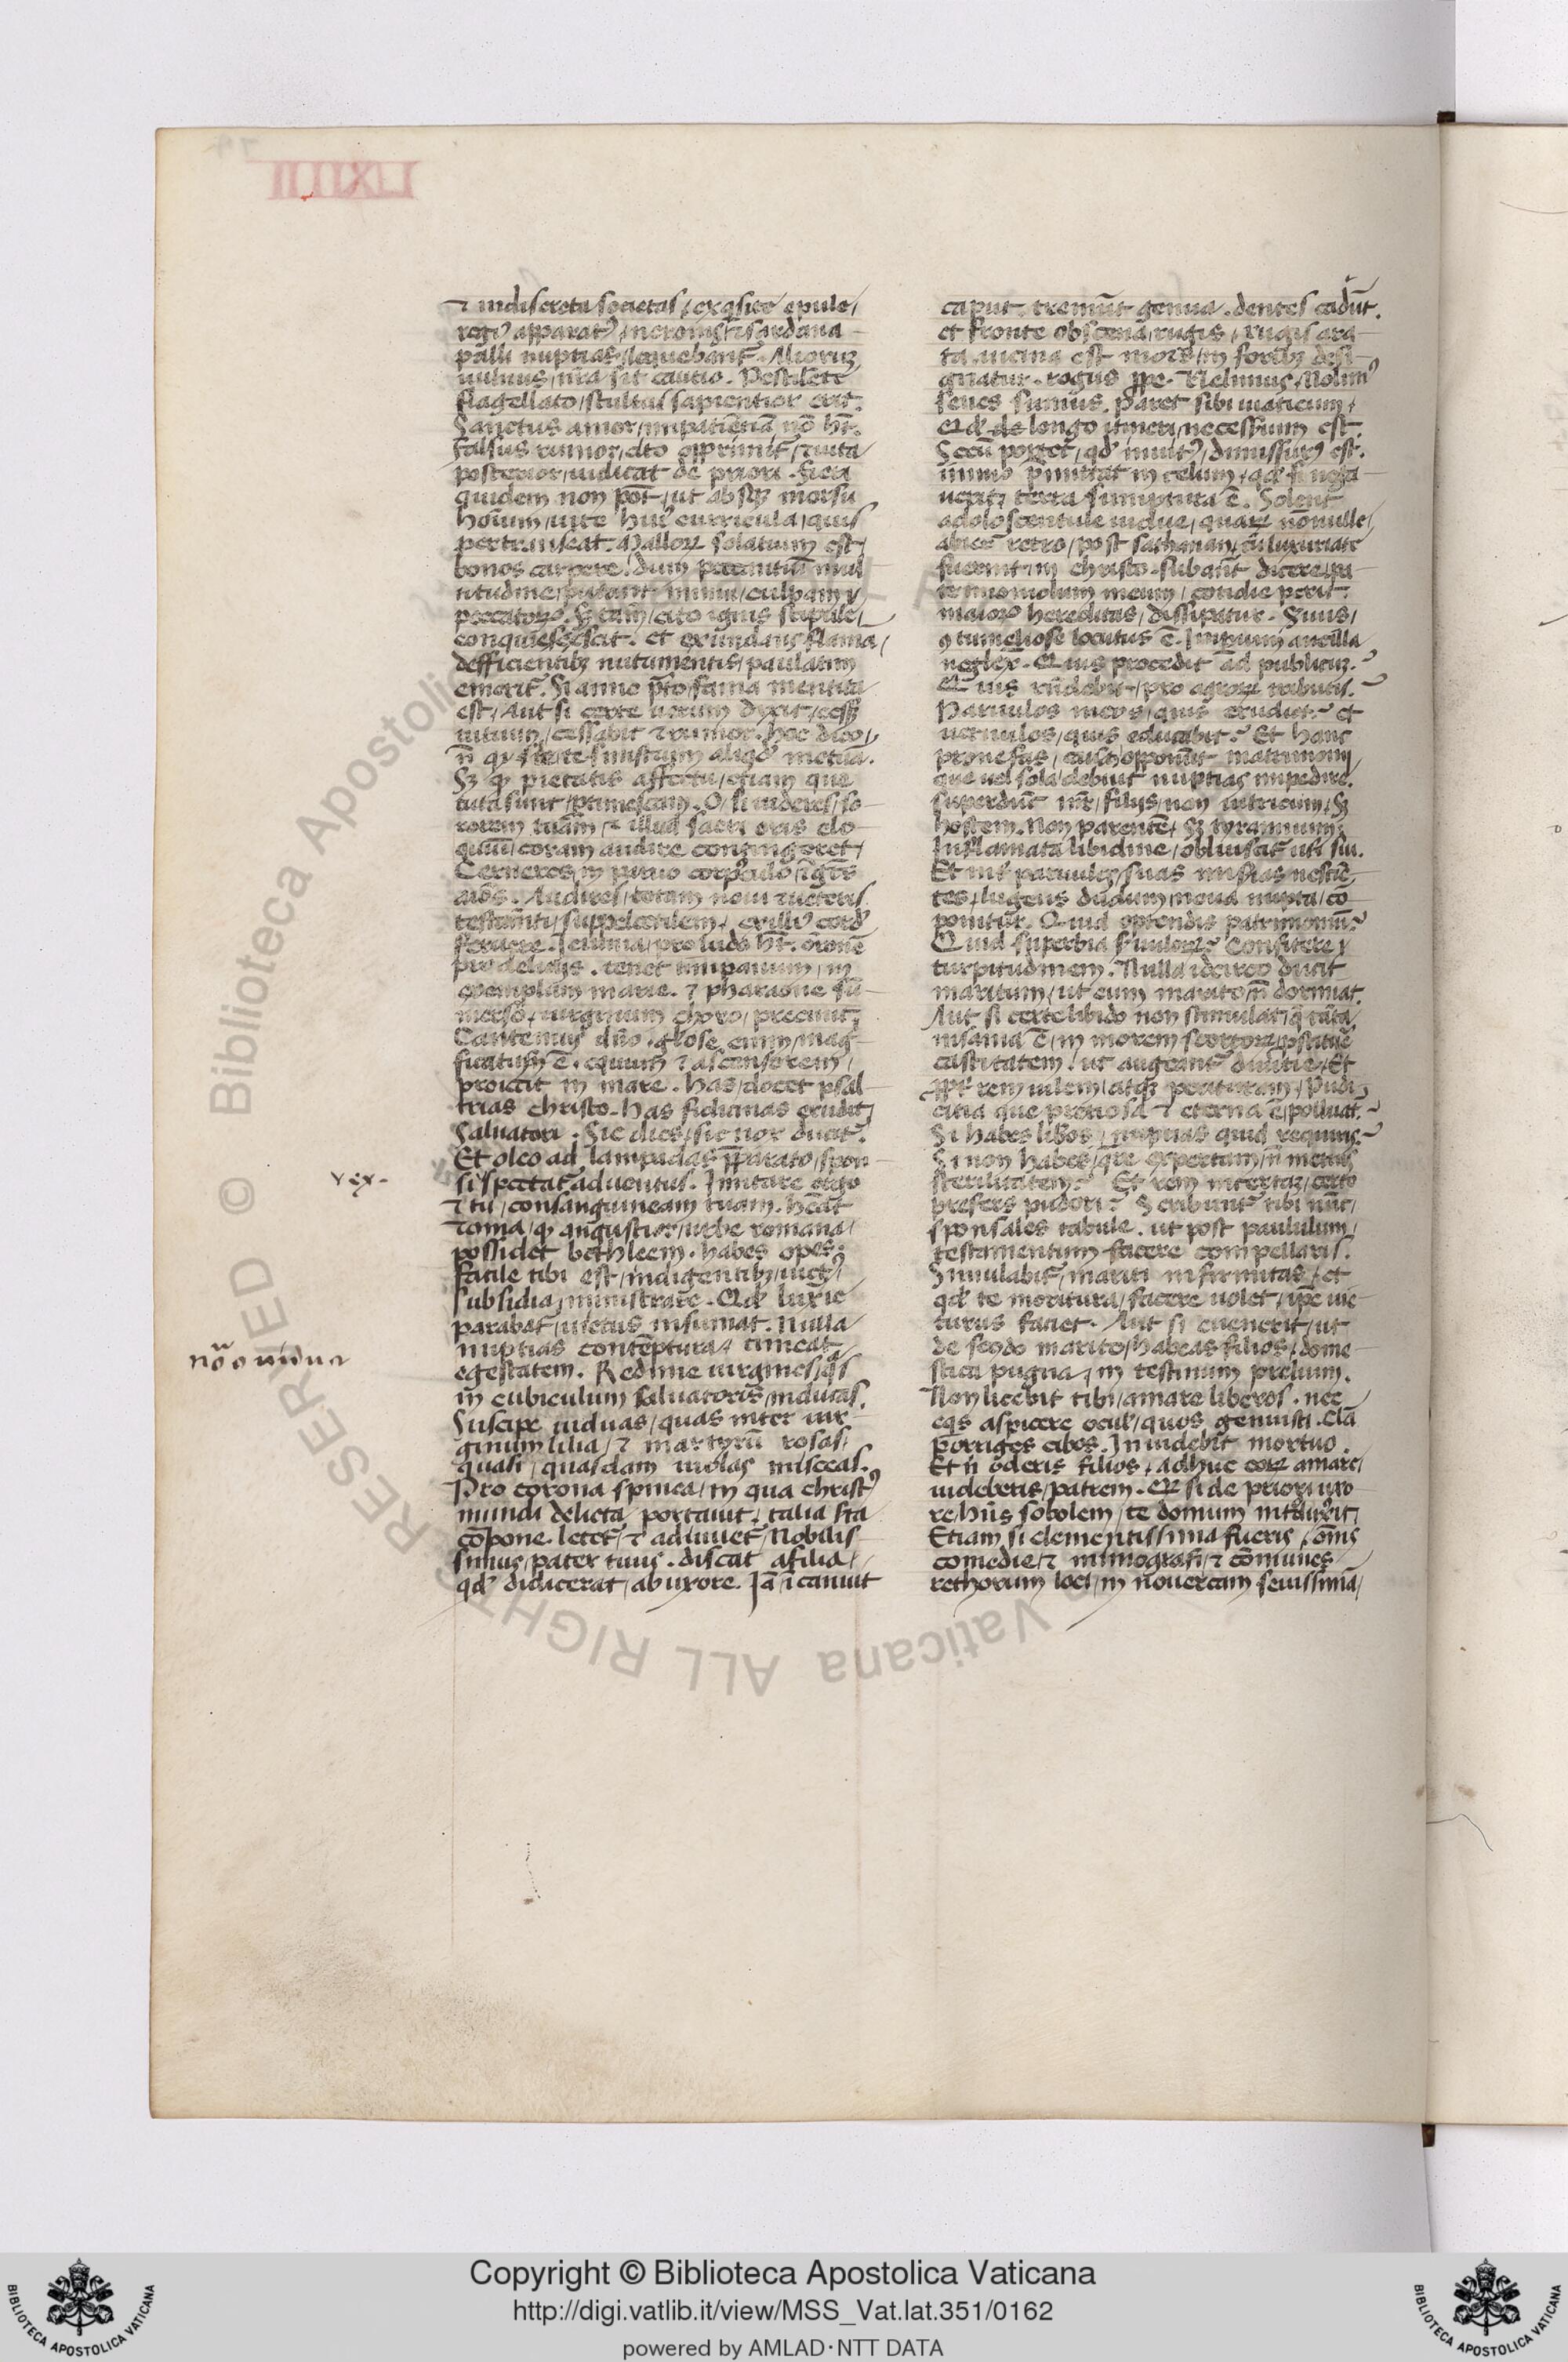 ⁊ indiscreta societas / exqsite epule /
regiꝰ apparatꝰ / neronis / ⁊ sardana
palli nuptias / loquebant᷑ . Aliorum
uulnus / nr̄a sit cautio . Pestilente
flagellato / stultus sapientior erit .
Sanctus amor / impatientiā nō ht̄ .
falsus rumor / cito opprimit᷑ / ⁊ uita
posterior / iudicat de priori . fieri
quidem non pōt / ut absqꝫ morsu
hoīum / uite huiꝰ curricula / quis
pertranseat . Malloꝝ solatium est /
bonos carpere / dum peccantiū mul
titudine / putant minui / culpam
peccatorꝝ . Sꝫ tam̄ / cito ignis stipule /
conquiescit . et exundans flama /
defficientibꝫ nutrimentis / paulatim
emorit᷑ . Si anno p̄to / fama mentita
est / Aut si certe uerum dixit / cesset
uitium / cessabit ⁊ rumor . hec dico /
n̄ qꝫ de te / sinistrum aliqd̓ metuā .
Sꝫ qꝫ pietatis affectu / etiam que
tuta sunt / ptimescam . O / si uideres / so
rorem tuam / ⁊ illud sacri oris elo
quiū / coram audire contingeret /
Cerneres / in paruo corpusculo / īgētes
aīos . Audires / totam noui ⁊ ueteris
testam̄ti / suppelectilem / ex illiꝰ corde
feruere . Ieiunia / pro ludo ht̄ . oronē
pro delicijs . tenet timpanum / in
exemplum marie . ⁊ pharaone sū
merso / uirginum choro / precinit /
Cantemus dn̄o . gl̄ose enim / mag
ficatus ē . equum ⁊ ascensorem /
proiecit in mare . has / docet psal
trias christo . has fidicinas erudit /
Saluatori . Sic dies / sic nox ducit᷑ .
Et oleo ad lampadas p̄parato / spon
si / spectat᷑ aduentus . Imitare ergo
⁊ tu / consanguineam tuam . hēat
roma / qꝫ angustior / urbe romana /
possidet bethleem . habes opes .
facile tibi est / indigentibꝫ / uictꝰ /
subsidia / ministrare . Qd̓ luxīe
parabat / uictus insumat . Nulla
nuptias contēptura / timeat
egestatem . Redime uirgines / qͣs
in cubiculum saluatoris / inducas .
Suscipe uiduas / quas inter uir
ginum lilia / ⁊ martyrū rosas /
quasi / quasdam uiolas misceas .
Pro corona spinea / in qua christꝰ
mundi delicta portauit / talia s̄ta
cōpone . letet᷑ / ⁊ adiuuet / Nobilis
simus / pater tuus . discat a filia /
qd̓ didicerat / ab uxore . Iā / i canuit
vex .
nō̄ o uidua
caput . tremūt genua . dentes cadūt .
et fronte obscena rugis / rugis ara
ta . uicina est mors / in foribꝫ desi
gnatur . rogus ꝓpe . Uelimus / Nolimꝰ
senes sumus . Paret sibi uiaticum /
Qd̓ de longo itineri / necessarium est .
Secū portet / qd̓ inuitꝰ / dimissurꝰ est .
immo p̄mittat in celum / qd̓ si nega
uerit / terra sumptura ē . Solent
adoloscentule uidue / quaꝝ nonulle /
abierē retro / post sathanan / cū luxuriate
fuerint / in christo . subant dicere / pa
trimoniolum meum / cotidie perit .
maiorꝝ hereditas / dissipatur . Seruus /
ꝯtumeliose locutus ē . Imperium ancilla
neglex̄ . Quis procedit ad publicum .
Quis rn̄debit / pro agroꝝ tributis .
Paruulos meos / quis erudiet . et
uernulos / quis educabit . Et hanc
pro nefas / cām opponūt matrimonij
que uel sola / debuit nuptias impedire .
superducit mr̄ / filijs / non uitricum / sꝫ
hostem . Non parentē / sꝫ tyrannum .
Inflamata libidine / obliuiscit᷑ uteri sui .
Et int̓ paruulos / suas miserias nesciē
tes / lugens dudum / noua nupta / cō
ponitur . Quid optendis patrimoniū
Quid superbia s̓uuloꝝ Confitere
turpitudinem . Nulla idcirco ducit
maritum / ut cum marito / n̄ dormiat .
Aut si certe libido non stimulat / q̄ tāta
insania ē / in morem scortoꝝ / ꝓstitue
castitatem / ut augeant᷑ diuitie / Et
ꝓpt̓ rem uilem / atqꝫ perituram / Pudi
citia que pretiosa ⁊ eterna ē / polluat᷑ .
Si habes lib̓os / nuptias quid requiris
Si non habes / q̄re expertam / n̄ metuis
sterilitatem . Et rem incertaꝫ / certo
prefers pudori . Scribunt᷑ tibi nūc /
sponsales tabule . ut post paululum /
testamentum facere compellaris .
Simulabit᷑ / mariti infirmitas / et
qd̓ te moritura / facere uolet / ipē uic
turus faciet . Aut si euenerit / ut
de scdo marito / habeas filios / dome
stica pugna / in testinum prelium .
Non licebit tibi / amare liberos . nec
eqs aspicere ocul̓ / quos genuisti . Clā
porriges cibos . Inuidebit mortuo .
Et n̄ oderis filios / adhuc eoꝝ amare /
uideberis / patrem . Qd̓ si de priori uxo
re / hn̄s sobolem / te domum introduxerit /
Etiam si clementissima fueris / om̄s
comedie / ⁊ mimografi / ⁊ cōmunes
rethorum loci / in nouercam seuissimā /
LIXIIII
© Biblioteca Apostolica Vaticana ALL RIGHTS RESERVED
Copyright © Biblioteca Apostolica Vaticana
http://digi.vatlib.it/view/MSS_Vat.lat.351/0162
powered by AMLAD·NTT DATA
BIBLIOTECA APOSTOLICA VATICANA
BIBLIOTECA APOSTOLICA VATICANA